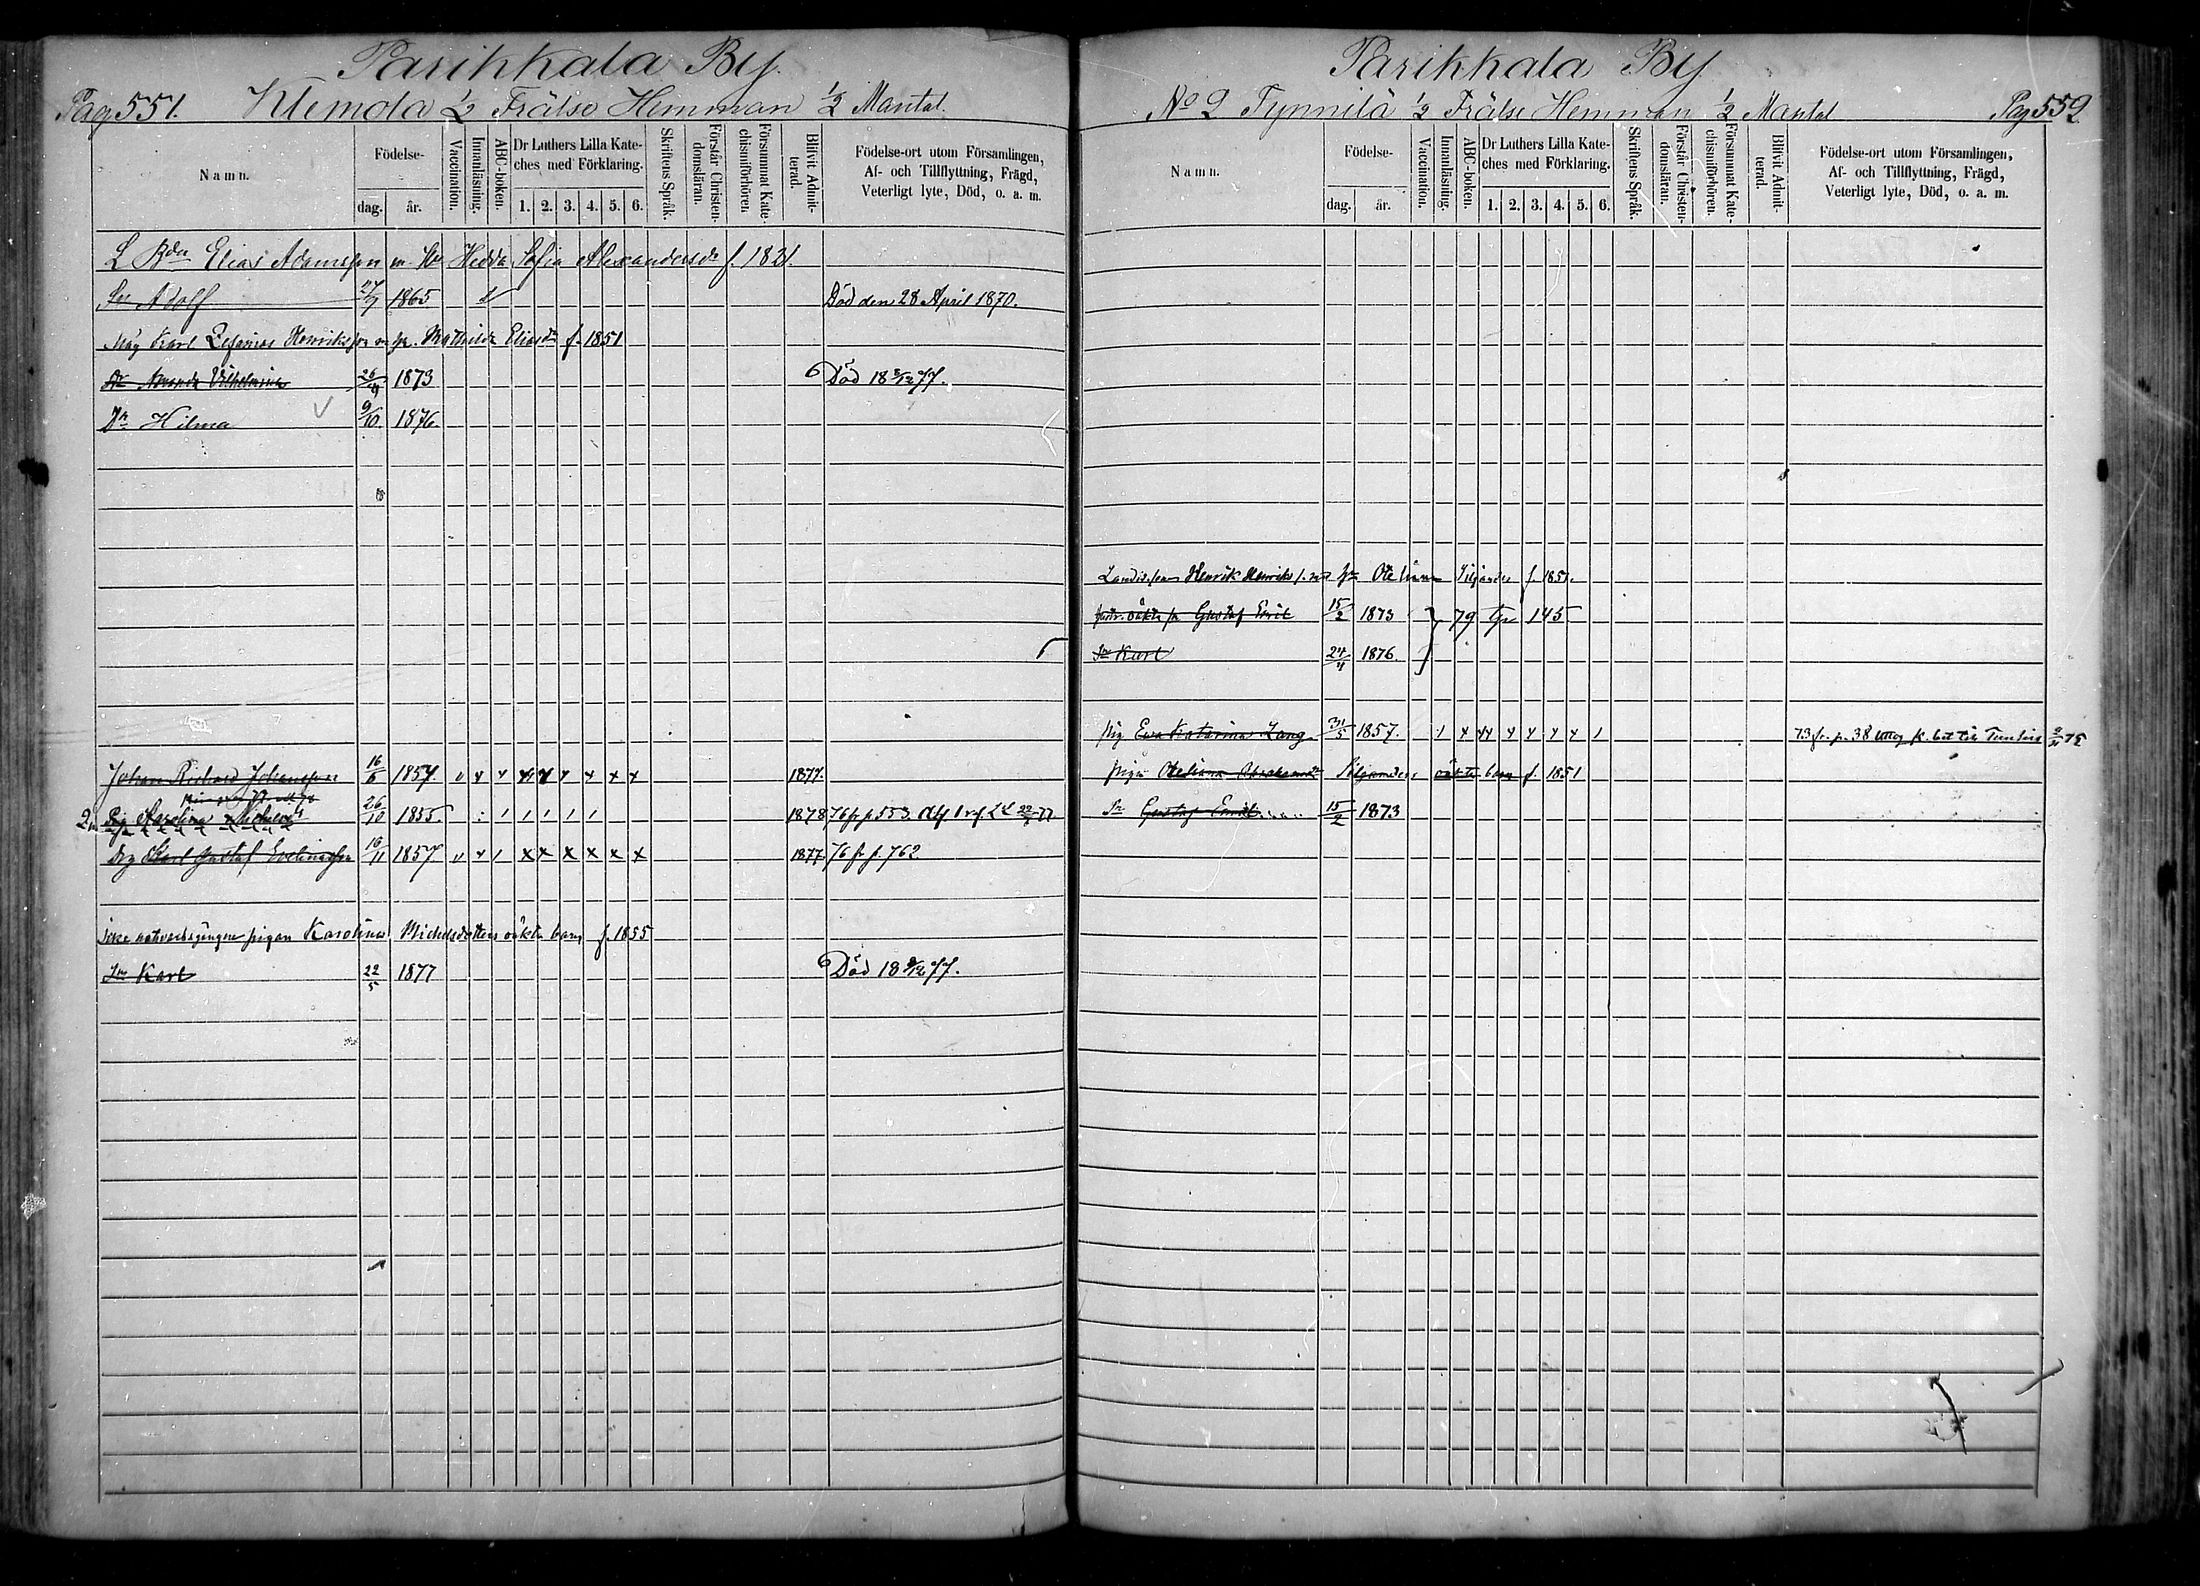 Parikkala By.
Pag 551. Klemola ½ Frälse Hemman ½ Mantal.
Namn.
Födelse-
dag.
år.
Vaccination.
Innanläsning.
ABC-boken.
Dr Luthers Lilla Kate-
ches med Förklaring.
1. 2. 3. 4. 5. 6.
Skriftens Språk.
Förstår Christen-
domsläran.
Försummat Kate-
chismiförhören.
Blifvit Admit-
terad.
Födelse-ort utom Församlingen,
Af- och Tillflyttning, Frägd,
Veterligt lyte, Död, o. a. m.
L Bdn Elias Adamsson m Hu Hedda Sofia Alexandersdr f. 1821.
Sn Adolf 27/7 1865 Död den 28 April 1870.
Måg Karl Zefanias Henriksson m hu. Mathilda Eliasdr f. 1851
Dr Amanda Vilhelmina 26/4 1873 Död 18 3/12 77.
Dr Hilma 9/10 1876
Johan Richard Johansson 16/6 1857. 1877.
Pig Karolina 26/10 1855 1878 76 fr p 553. 22/7 77
Drg Karl Gustaf Evelinasson 10/11 1857 1877 76 fr p. 762
pigan Karolina Michelsdotters oäkta barn f. 1855
Sn Karl 22/5 1877 Död 18 9/12 77.
Parikkala By
No 2 Tynnilä ½ Frälse Hemman ½ Mantal Pag 552
Namn.
Födelse-
dag.
år.
Vaccination.
Innanläsning.
ABC-boken.
Dr Luthers Lilla Kate-
ches med Förklaring.
1. 2. 3. 4. 5. 6.
Skriftens Språk.
Förstår Christen-
domsläran.
Försummat Kate-
chismiförhören.
Blifvit Admit-
terad.
Födelse-ort utom Församlingen,
Af- och Tillflyttning, Frägd,
Veterligt lyte, Död, o. a. m.
Henrik Henriksson hu Oteliana Siljander f. 1851.
oäkta sn Gustaf Emil 15/2 1873 79 145
Sn Karl 24/4 1876.
pig Eva Katarina Lang 31/5 1857. 73 fr. p. 38 uttog k. bet till
pigan Oteliana Siljanders oäkta barn f. 1851
Sn Gustaf Emil 15/2 1873